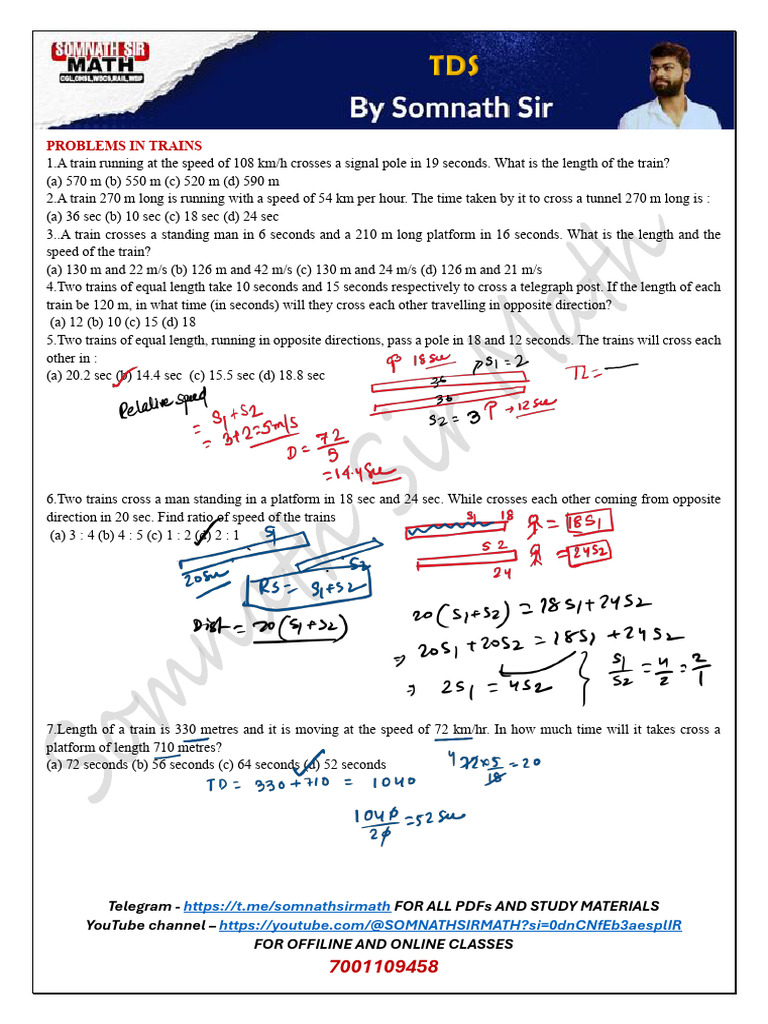 SOMNATH SIR
MATH
CGL,CHSL,WBCS,RAIL,WBP
TDS
By Somnath Sir
PROBLEMS IN TRAINS
1.A train running at the speed of 108 km/h crosses a signal pole in 19 seconds. What is the length of the train?
(a) 570 m (b) 550 m (c) 520 m (d) 590 m
2.A train 270 m long is running with a speed of 54 km per hour. The time taken by it to cross a tunnel 270 m long is :
(a) 36 sec (b) 10 sec (c) 18 sec (d) 24 sec
3..A train crosses a standing man in 6 seconds and a 210 m long platform in 16 seconds. What is the length and the
speed of the train?
(a) 130 m and 22 m/s (b) 126 m and 42 m/s (c) 130 m and 24 m/s (d) 126 m and 21 m/s
4.Two trains of equal length take 10 seconds and 15 seconds respectively to cross a telegraph post. If the length of each
train be 120 m, in what time (in seconds) will they cross each other travelling in opposite direction?
(a) 12 (b) 10 (c) 15 (d) 18
5.Two trains of equal length, running in opposite directions, pass a pole in 18 and 12 seconds. The trains will cross each
other in :
(a) 20.2 sec (b) 14.4 sec (c) 15.5 sec (d) 18.8 sec
P 18 sec
S1 = 2
36
36
S2 = 3 P → 12 sec
Relative speed
= S1 + S2
= 3+2=5m/s
D = 72/5
=14.4 Sec
6.Two trains cross a man standing in a platform in 18 sec and 24 sec. While crosses each other coming from opposite
direction in 20 sec. Find ratio of speed of the trains
(a) 3 : 4 (b) 4 : 5 (c) 1 : 2 (d) 2 : 1
S1 18
= 18S1
S2
= 24S2
24
S1
S2
20 sec
RS = S1+S2
Dist = 20(S1+S2)
20(S1+S2) = 18S1+24S2
⇒ 20S1+20S2 = 18S1+24S2
⇒ 2S1 = 4S2
S1/S2 = 4/2 = 2/1
7.Length of a train is 330 metres and it is moving at the speed of 72 km/hr. In how much time will it takes cross a
platform of length 710 metres?
(a) 72 seconds (b) 56 seconds (c) 64 seconds (d) 52 seconds
TD = 330+710 = 1040
4 72×5/18 = 20
1040/20 = 52 sec
Somnath Sir Math
Telegram - https://t.me/somnathsirmath FOR ALL PDFs AND STUDY MATERIALS
YouTube channel – https://youtube.com/@SOMNATHSIRMATH?si=0dnCNfEb3aesplIR
FOR OFFILINE AND ONLINE CLASSES
7001109458